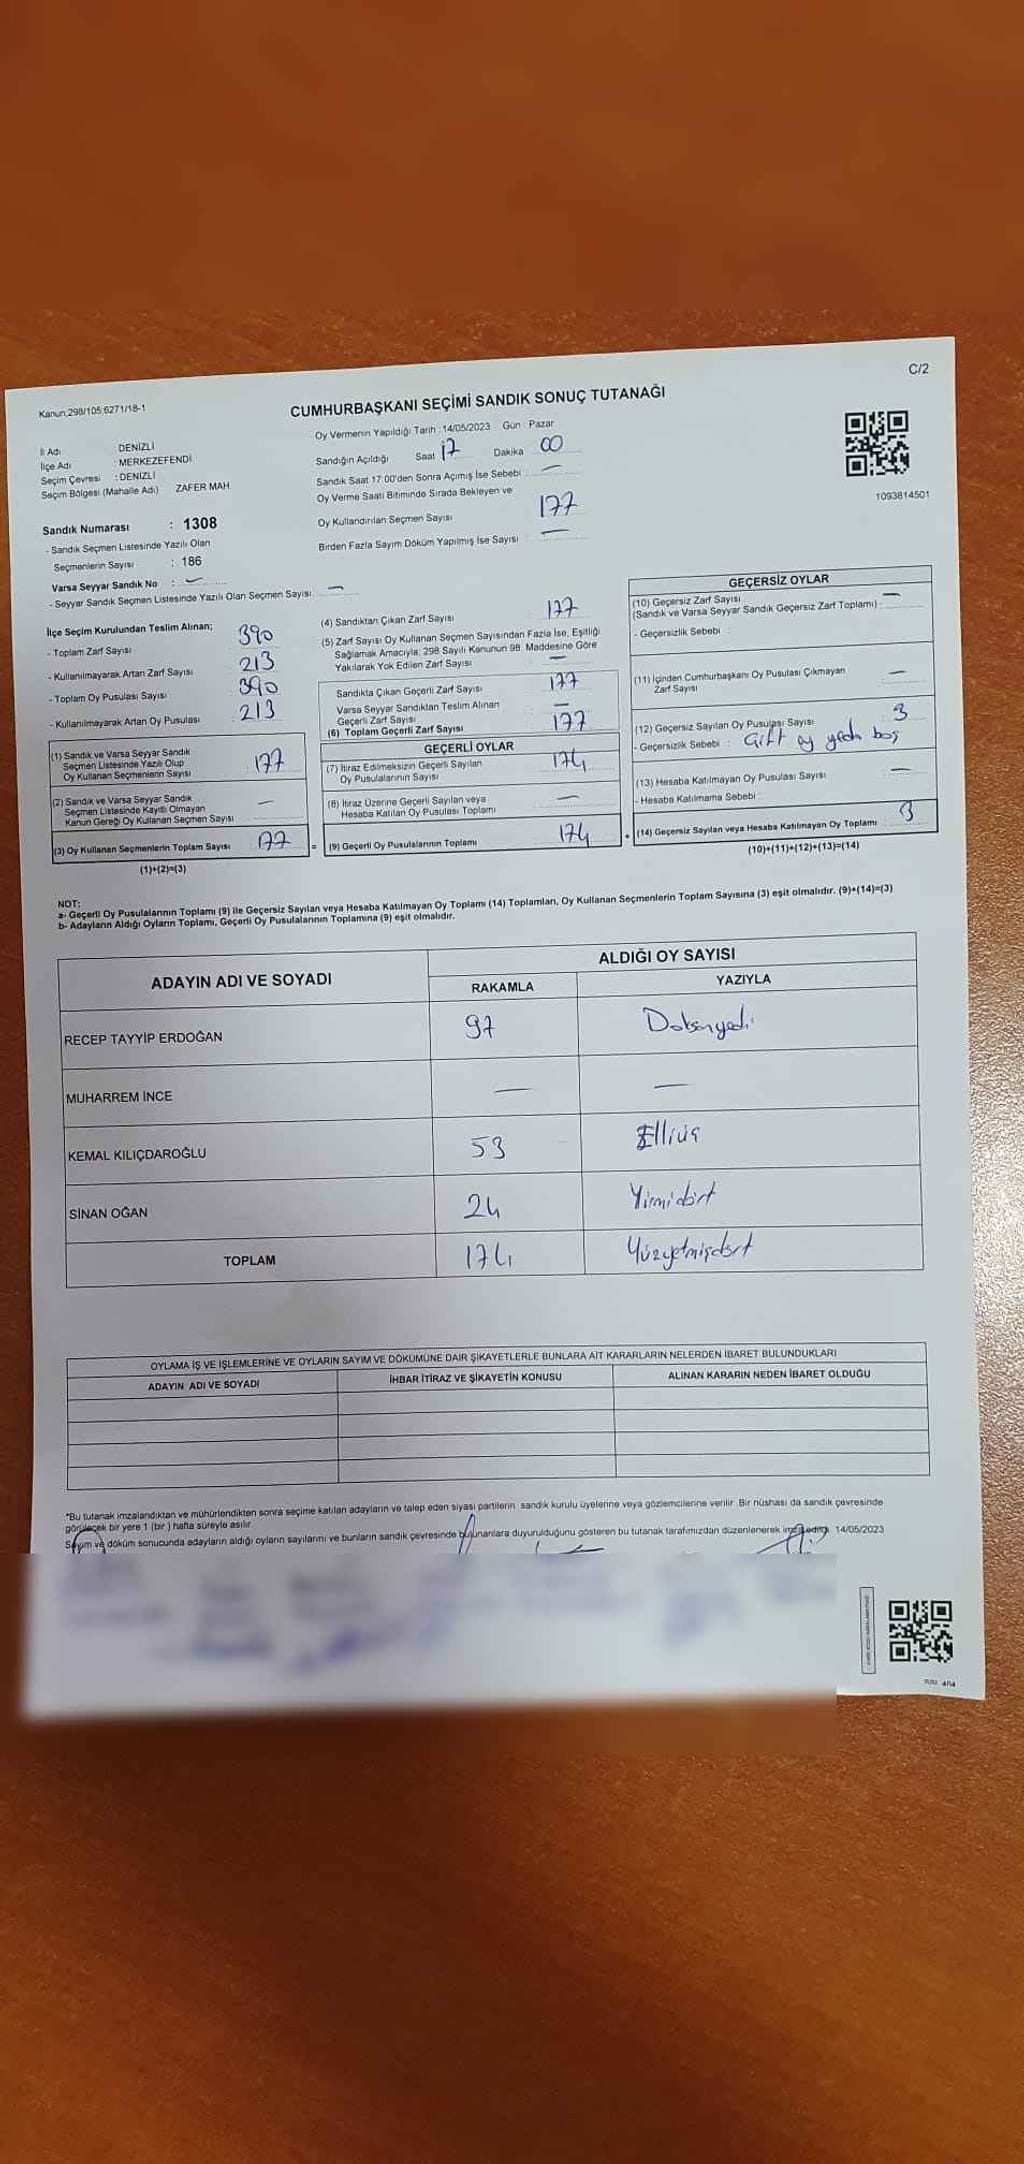 C/2
Kanun,298/105;6271/18-1
CUMHURBAŞKANI SEÇİMİ SANDIK SONUÇ TUTANAĞI
İl Adı DENİZLİ
İlçe Adı : MERKEZEFENDİ
Seçim Çevresi : DENİZLİ
Seçim Bölgesi (Mahalle Adı) ZAFER MAH
Sandık Numarası : 1308
- Sandık Seçmen Listesinde Yazılı Olan
Seçmenlerin Sayısı : 186
Varsa Seyyar Sandık No : —
- Seyyar Sandık Seçmen Listesinde Yazılı Olan Seçmen Sayısı —
Oy Vermenin Yapıldığı Tarih : 14/05/2023 Gün : Pazar
Sandığın Açıldığı Saat 17 Dakika 00
Sandık Saat 17:00'den Sonra Açımış İse Sebebi —
Oy Verme Saati Bitiminde Sırada Bekleyen ve
Oy Kullandırılan Seçmen Sayısı 177
Birden Fazla Sayım Döküm Yapılmış İse Sayısı —
1093814501
İlçe Seçim Kurulundan Teslim Alınan;
- Toplam Zarf Sayısı 390
- Kullanılmayarak Artan Zarf Sayısı 213
- Toplam Oy Pusulası Sayısı 390
- Kullanılmayarak Artan Oy Pusulası 213
(1) Sandık ve Varsa Seyyar Sandık
Seçmen Listesinde Yazılı Olup
Oy Kullanan Seçmenlerin Sayısı 177
(2) Sandık ve Varsa Seyyar Sandık
Seçmen Listesinde Kayıtlı Olmayan
Kanun Gereği Oy Kullanan Seçmen Sayısı —
(3) Oy Kullanan Seçmenlerin Toplam Sayısı 177
(1)+(2)=(3)
(4) Sandıktan Çıkan Zarf Sayısı 177
(5) Zarf Sayısı Oy Kullanan Seçmen Sayısından Fazla İse, Eşitliği
Sağlamak Amacıyla; 298 Sayılı Kanunun 98. Maddesine Göre
Yakılarak Yok Edilen Zarf Sayısı —
Sandıkta Çıkan Geçerli Zarf Sayısı 177
Varsa Seyyar Sandıktan Teslim Alınan
Geçerli Zarf Sayısı —
(6) Toplam Geçerli Zarf Sayısı 177
GEÇERLİ OYLAR
(7) İtiraz Edilmeksizin Geçerli Sayılan
Oy Pusulalarının Sayısı 174
(8) İtiraz Üzerine Geçerli Sayılan veya
Hesaba Katılan Oy Pusulası Toplamı —
= (9) Geçerli Oy Pusulalarının Toplamı 174
GEÇERSİZ OYLAR
(10) Geçersiz Zarf Sayısı —
(Sandık ve Varsa Seyyar Sandık Geçersiz Zarf Toplamı) :
- Geçersizlik Sebebi :
(11) İçinden Cumhurbaşkanı Oy Pusulası Çıkmayan
Zarf Sayısı —
(12) Geçersiz Sayılan Oy Pusulası Sayısı 3
- Geçersizlik Sebebi : Çift oy yada boş
(13) Hesaba Katılmayan Oy Pusulası Sayısı —
- Hesaba Katılmama Sebebi :
+ (14) Geçersiz Sayılan veya Hesaba Katılmayan Oy Toplamı 3
(10)+(11)+(12)+(13)=(14)
NOT:
a- Geçerli Oy Pusulalarının Toplamı (9) ile Geçersiz Sayılan veya Hesaba Katılmayan Oy Toplamı (14) Toplamları, Oy Kullanan Seçmenlerin Toplam Sayısına (3) eşit olmalıdır. (9)+(14)=(3)
b- Adayların Aldığı Oyların Toplamı, Geçerli Oy Pusulalarının Toplamına (9) eşit olmalıdır.
ADAYIN ADI VE SOYADI ALDIĞI OY SAYISI
RAKAMLA YAZIYLA
RECEP TAYYİP ERDOĞAN 97 Doksanyedi
MUHARREM İNCE — —
KEMAL KILIÇDAROĞLU 53 Elliüç
SİNAN OĞAN 24 Yirmidört
TOPLAM 174 Yüzyetmişdört
OYLAMA İŞ VE İŞLEMLERİNE VE OYLARIN SAYIM VE DÖKÜMÜNE DAİR ŞİKAYETLERLE BUNLARA AİT KARARLARIN NELERDEN İBARET BULUNDUKLARI
ADAYIN ADI VE SOYADI İHBAR İTİRAZ VE ŞİKAYETİN KONUSU ALINAN KARARIN NEDEN İBARET OLDUĞU
*Bu tutanak imzalandıktan ve mühürlendikten sonra seçime katılan adayların ve talep eden siyasi partilerin sandık kurulu üyelerine veya gözlemcilerine verilir. Bir nüshası da sandık çevresinde
görülecek bir yere 1 (bir) hafta süreyle asılır.
Sayım ve döküm sonucunda adayların aldığı oyların sayılarını ve bunların sandık çevresinde bulunanlara duyurulduğunu gösteren bu tutanak tarafımızdan düzenlenerek imza edildi. 14/05/2023